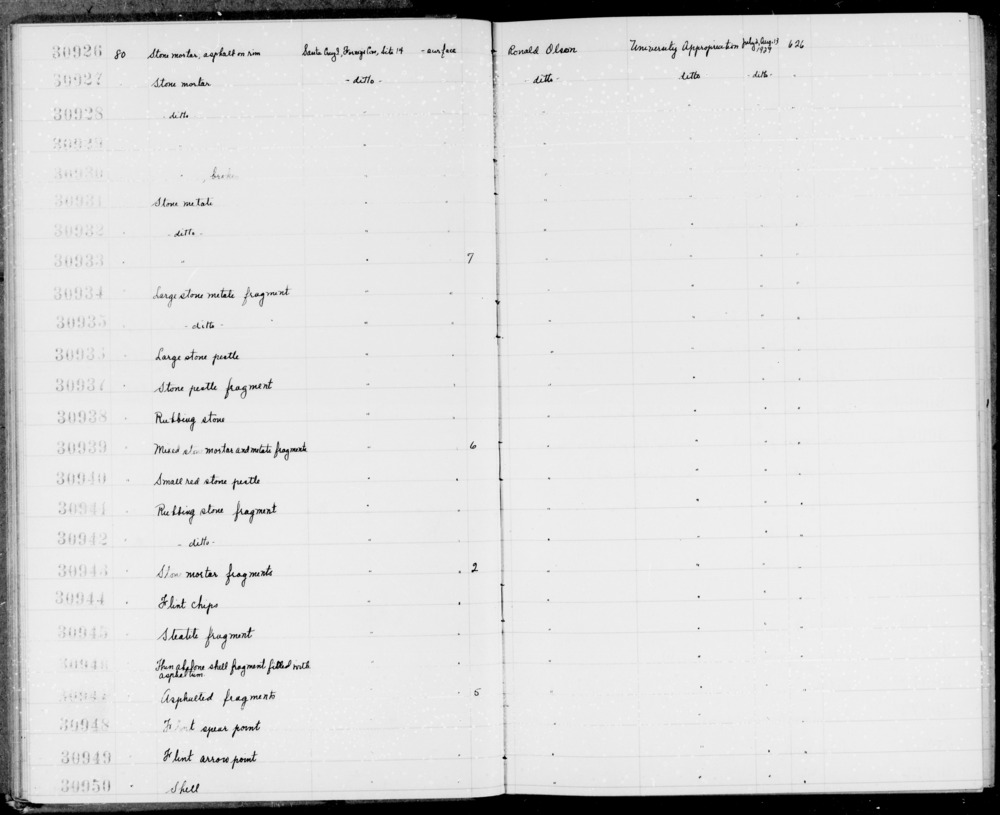 30926 80 Stone mortar, asphalt on rim Santa Cruz I, Forneys Cove, Site 14 - surface Ronald Olson University Appropriation July 2, Aug. 13 1927 626
30927 " Stone mortar - ditto - - ditto - ditto - ditto -
30928 " ditto " " " " " "
30929 " " " " " " " "
30930 " " , broken " " " " " "
30931 " Stone metate " " " " " "
30932 " - ditto - " " " " " "
30933 " " " 7 " " " "
30934 " Large stone metate fragment " " " " " "
30935 " - ditto - " " " " " "
30936 " Large stone pestle " " " " " "
30937 " Stone pestle fragment " " " " " "
30938 " Rubbing stone " " " " " "
30939 " Mixed stone mortar and metate fragments " " 6 " " " "
30940 " Small red stone pestle " " " " " "
30941 " Rubbing stone fragment " " " " " "
30942 " - ditto - " " " " " "
30943 " Stone mortar fragments " " 2 " " " "
30944 " Flint chips " " " " " "
30945 " Steatite fragment " " " " " "
30946 " Thin abalone shell fragment filled with " " " " " "
asphaltum
30947 " Asphalted fragments " " 5 " " " "
30948 " Flint spear point " " " " " "
30949 " Flint arrow point " " " " " "
30950 " Shell " " " " " "